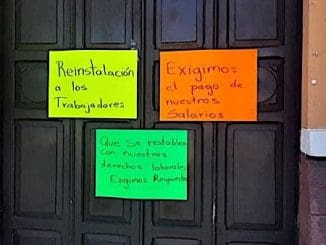 Reinstalación
a los
Trabajadores
Exigimos
el pago de
nuestros
Salarios
Que se restablen
con nuestros
derechos laborales
Exigimos Respuesta